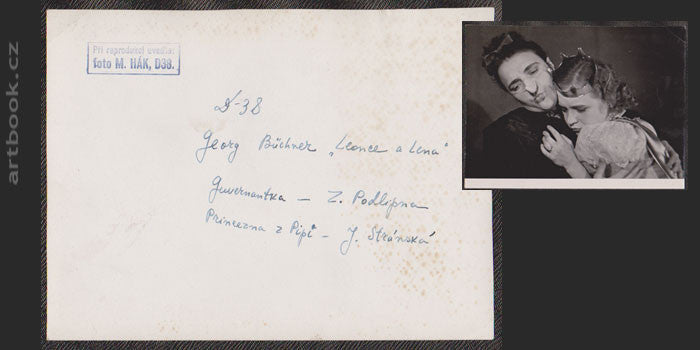 artbook.cz
Při reprodukci uveďte:
foto M. HÁK, D38.
D-38
Georg Büchner „Leonce a Lena"
Guvernantka – Z. Podlipna
Princezna z Pipi – J. Stránská